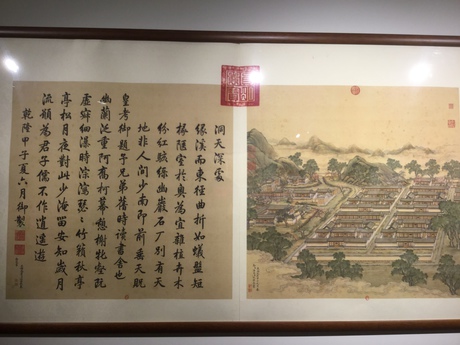 洞天深處
緣溪而東徑曲折如蟻盤短
椽陋室於奧為宜雜植卉木
紛紅駭綠幽巖石厂別有天
地非人間少南即前垂天貺
皇考御題予兄弟舊時讀書舍也
幽蘭泛重阿喬柯幕憩榭牝壑既
虛寂細瀑時淙瀉瑟々竹籟秋亭
亭松月夜對此少淹留安知歲月
流願為君子儒不作逍遙遊
乾隆甲子夏六月御製